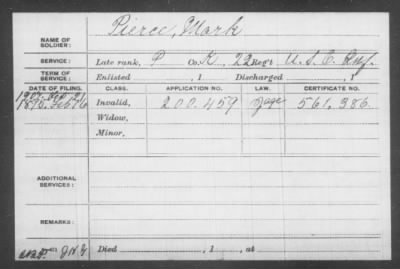 NAME OF SOLDIER: Pierce, Mark
SERVICE: Late rank, P Co. K, 22 Reg't U. S. C. Inf.
TERM OF SERVICE: Enlisted , 1 Discharged , 1
DATE OF FILING. CLASS. APPLICATION NO. LAW. CERTIFICATE NO.
Invalid, 200.459 561.386.
Widow,
Minor,
ADDITIONAL SERVICES:
REMARKS:
Died , 1 , at